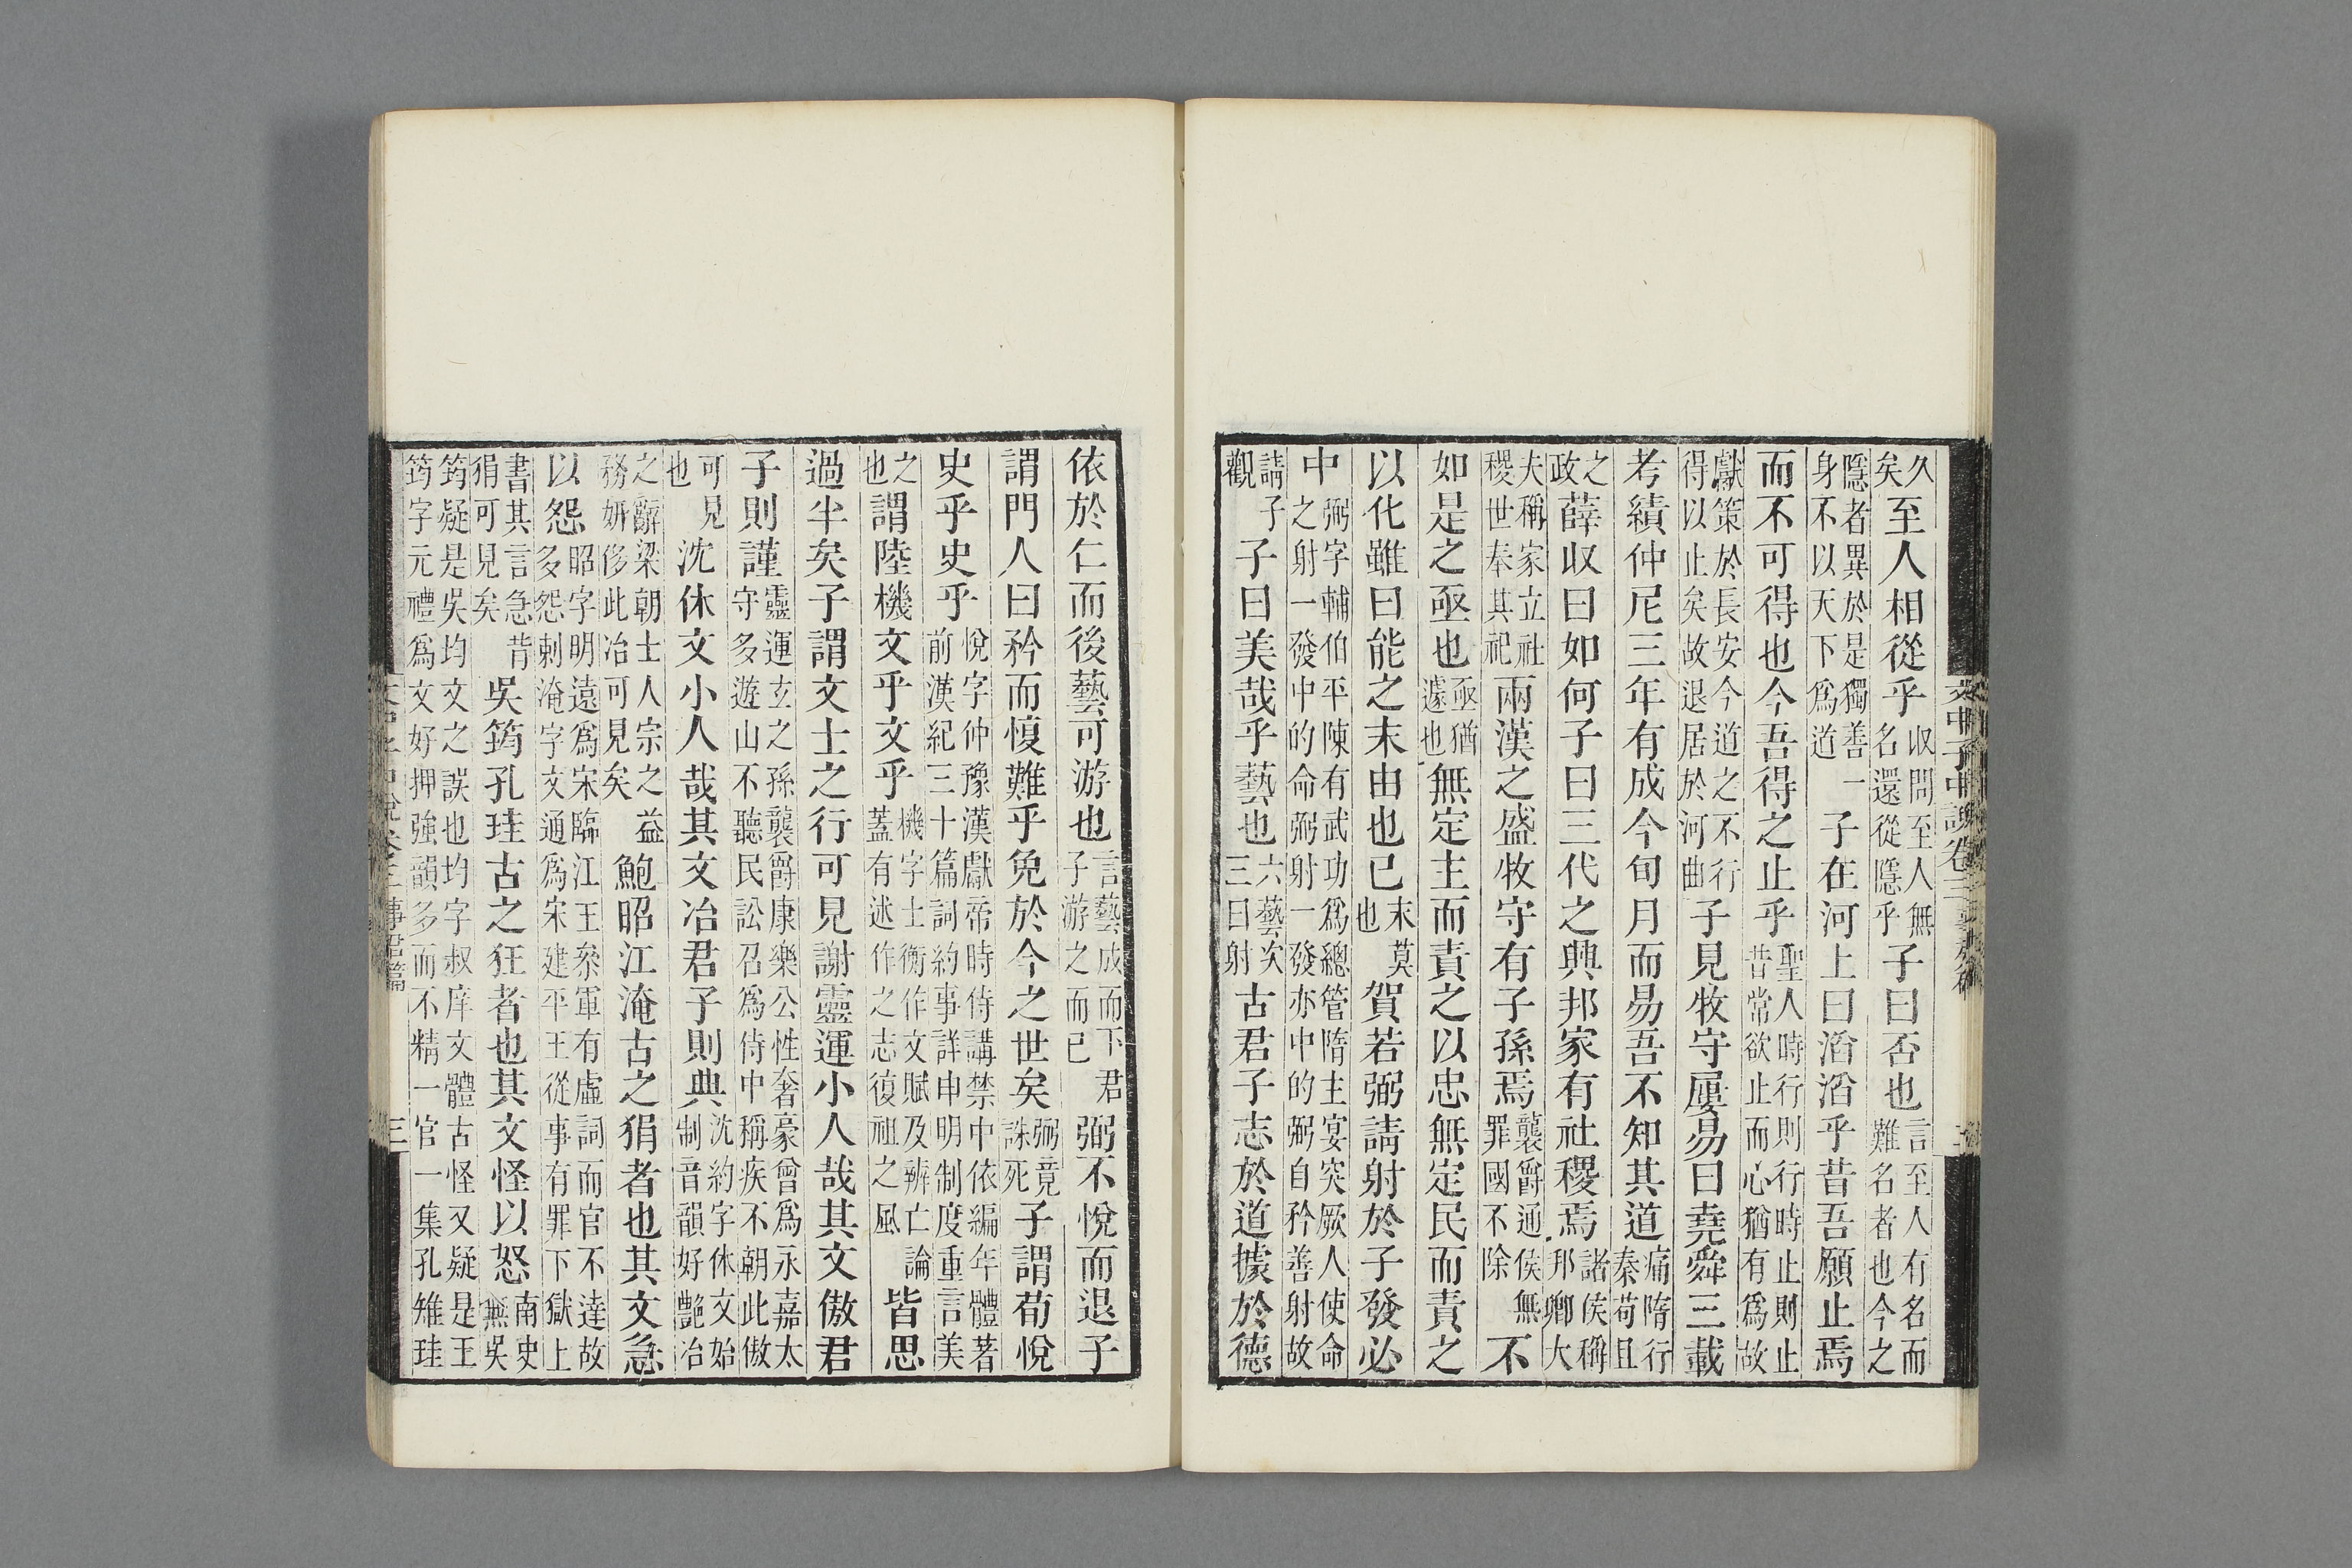 文中子中說卷三
久矣至人相從乎收問至人無名還從隱乎子曰否也言至人有名而難名者也今之
隱者異於是獨善一身不以天下爲道子在河上曰滔滔乎昔吾願止焉
而不可得也今吾得之止乎聖人時行則行時止則止昔常欲止而心猶有爲故
獻策於長安今道之不行得以止矣故退居於河曲子見牧守屢易曰堯舜三載
考績仲尼三年有成今旬月而易吾不知其道痛隋行秦苟且
之政薛収曰如何子曰三代之興邦家有社稷焉諸侯稱邦卿大
夫稱家立社稷世奉其祀兩漢之盛牧守有子孫焉襲爵通侯無罪國不除不
如是之亟也亟猶遽也無定主而責之以忠無定民而責之
以化雖曰能之末由也已末莫也賀若弼請射於子發必
中弼字輔伯平陳有武功爲總管隋主宴突厥人使命之射一發中的命弼射一發亦中的弼自矜善射故
請子觀子曰美哉乎藝也六藝次三曰射古君子志於道據於德
依於仁而後藝可游也言藝成而下君子游之而已弼不悅而退子
謂門人曰矜而愎難乎免於今之世矣弼竟誅死子謂荀悅
史乎史乎悅字仲豫漢獻帝時侍講禁中依編年體著前漢紀三十篇詞約事詳申明制度重言美
之也謂陸機文乎文乎機字士衡作文賦及辨亡論蓋有述作之志復祖之風皆思
過半矣子謂文士之行可見謝靈運小人哉其文傲君
子則謹靈運玄之孫襲爵康樂公性奢豪曾爲永嘉太守多遊山不聽民訟召爲侍中稱疾不朝此傲
可見也沈休文小人哉其文冶君子則典沈約字休文始制音韻好艷冶
之辭梁朝士人宗之益務妍侈此冶可見矣鮑昭江淹古之狷者也其文急
以怨昭字明遠爲宋臨江王叅軍有虛詞而官不達故多怨刺淹字文通爲宋建平王從事有罪下獄上
書其言急昔狷可見矣吳筠孔珪古之狂者也其文怪以怒南史無吳
筠疑是吳均文之誤也均字叔庠文體古怪又疑是王筠字元禮爲文好押強韻多而不精一官一集孔雉珪
事君篇 三